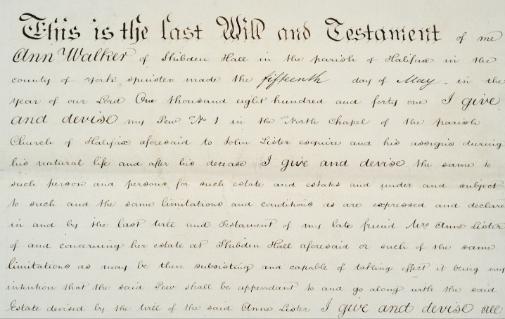 This is the last Will and Testament of me
Ann Walker of Shibden Hall in the parish of Halifax in the
county of York spinster made the fifteenth day of May in the
year of our Lord One thousand eight hundred and forty one I give
and devise my Pew No 1 in the North Chapel of the parish
Church of Halifax aforesaid to John Lister esquire and his assigns during
his natural life and after his decease I give and devise the same to
such person and persons for such estate and estates and under and subject
to such and the same limitations and conditions as are expressed and declared
in and by the last will and Testament of my late friend Mrs Anne Lister
of and concerning her estate at Shibden Hall aforesaid or such of the same
limitations as may be then subsisting and capable of taking effect it being my
intention that the said Pew shall be appendant to and go along with the said
Estate devised by the will of the said Anne Lister I give and devise all